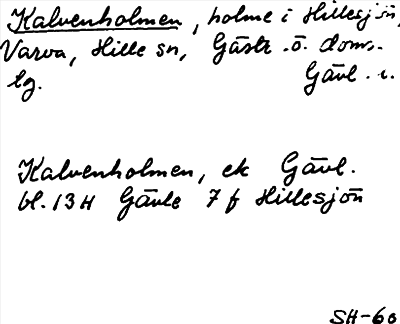 Kalvenholmen, holme i Hillesjön,
Varva, Hille sn, Gästr. ö. doms.
lg. Gävl. l.
Kalvenholmen, ek Gävl.
bl. 13 H Gävle 7 f Hillesjön
SH-60